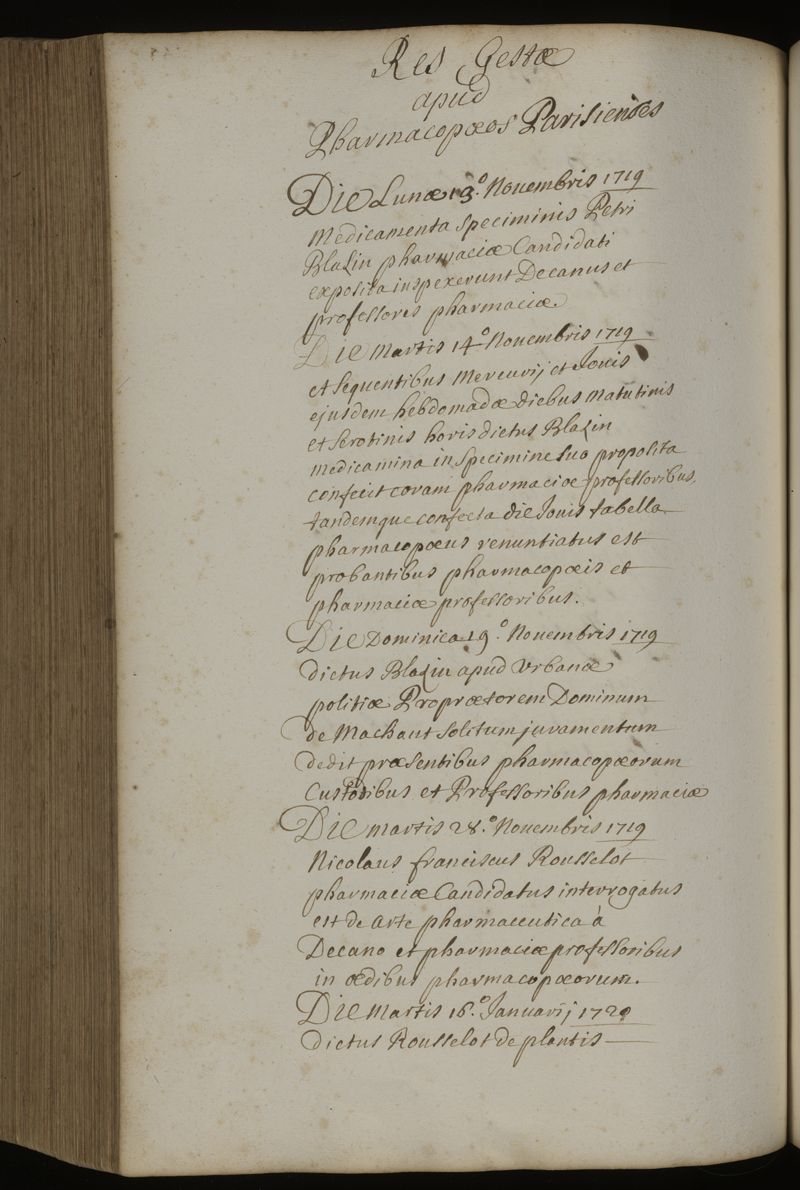 Res Gestæ
apud
Pharmacopœos Parisienses
Die Lunæ 13.º Novembris 1719
Medicamenta speciminis Petri
Blazin pharmaciæ Candidati
exposita inspexerunt Decanus et
professores pharmaciæ
Die Martis 14º Novembris 1719
et sequentibus Mercurij et Jovis
ejusdem hebdomadæ diebus matutinis
et serotinis horis dictus Blazin
medicamina in specimine suo proposita
confecit coram pharmaciæ professoribus.
tandemque confecta die Jovis tabella
pharmacopœus renuntiatus est
probantibus pharmacopœis et
pharmaciæ professoribus.
Die Dominica 19.º Novembris 1719
dictus Blazin apud Urbanæ
politiæ Proprætorem Dominum
de Machaut solitum juramentum
dedit præsentibus pharmacopœorum
Custodibus et Professoribus pharmaciæ
Die martis 28.º Novembris 1719
Nicolaus franciscus Rousselot
pharmaciæ Candidatus interrogatus
est de Arte pharmaceutica à
Decano et pharmaciæ professoribus
in ædibus pharmacopœorum.
Die Martis 16.º Januarij 1720
dictus Rousselot de plantis